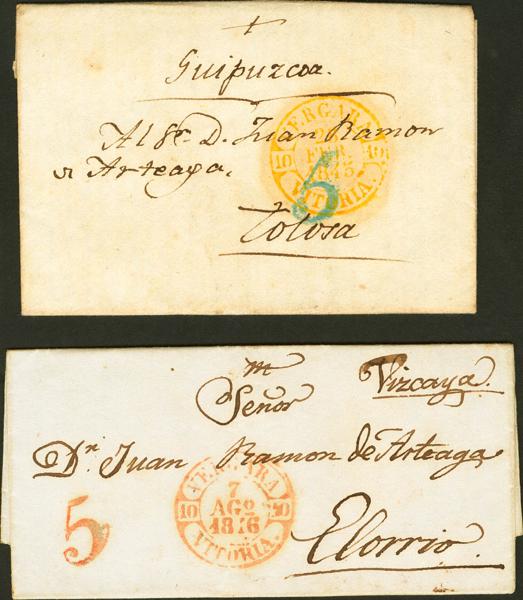 Guipuzcoa.
VERGARA
Al Sr. D. Juan Ramon
10 FEBR 10
1845
de Arteaga.
5
VITORIA.
Tolosa
Señor Vizcaya.
Dn. Juan Ramon de Arteaga
VERGARA
7
10 AGO 10
1846
5
VITORIA.
Elorrio